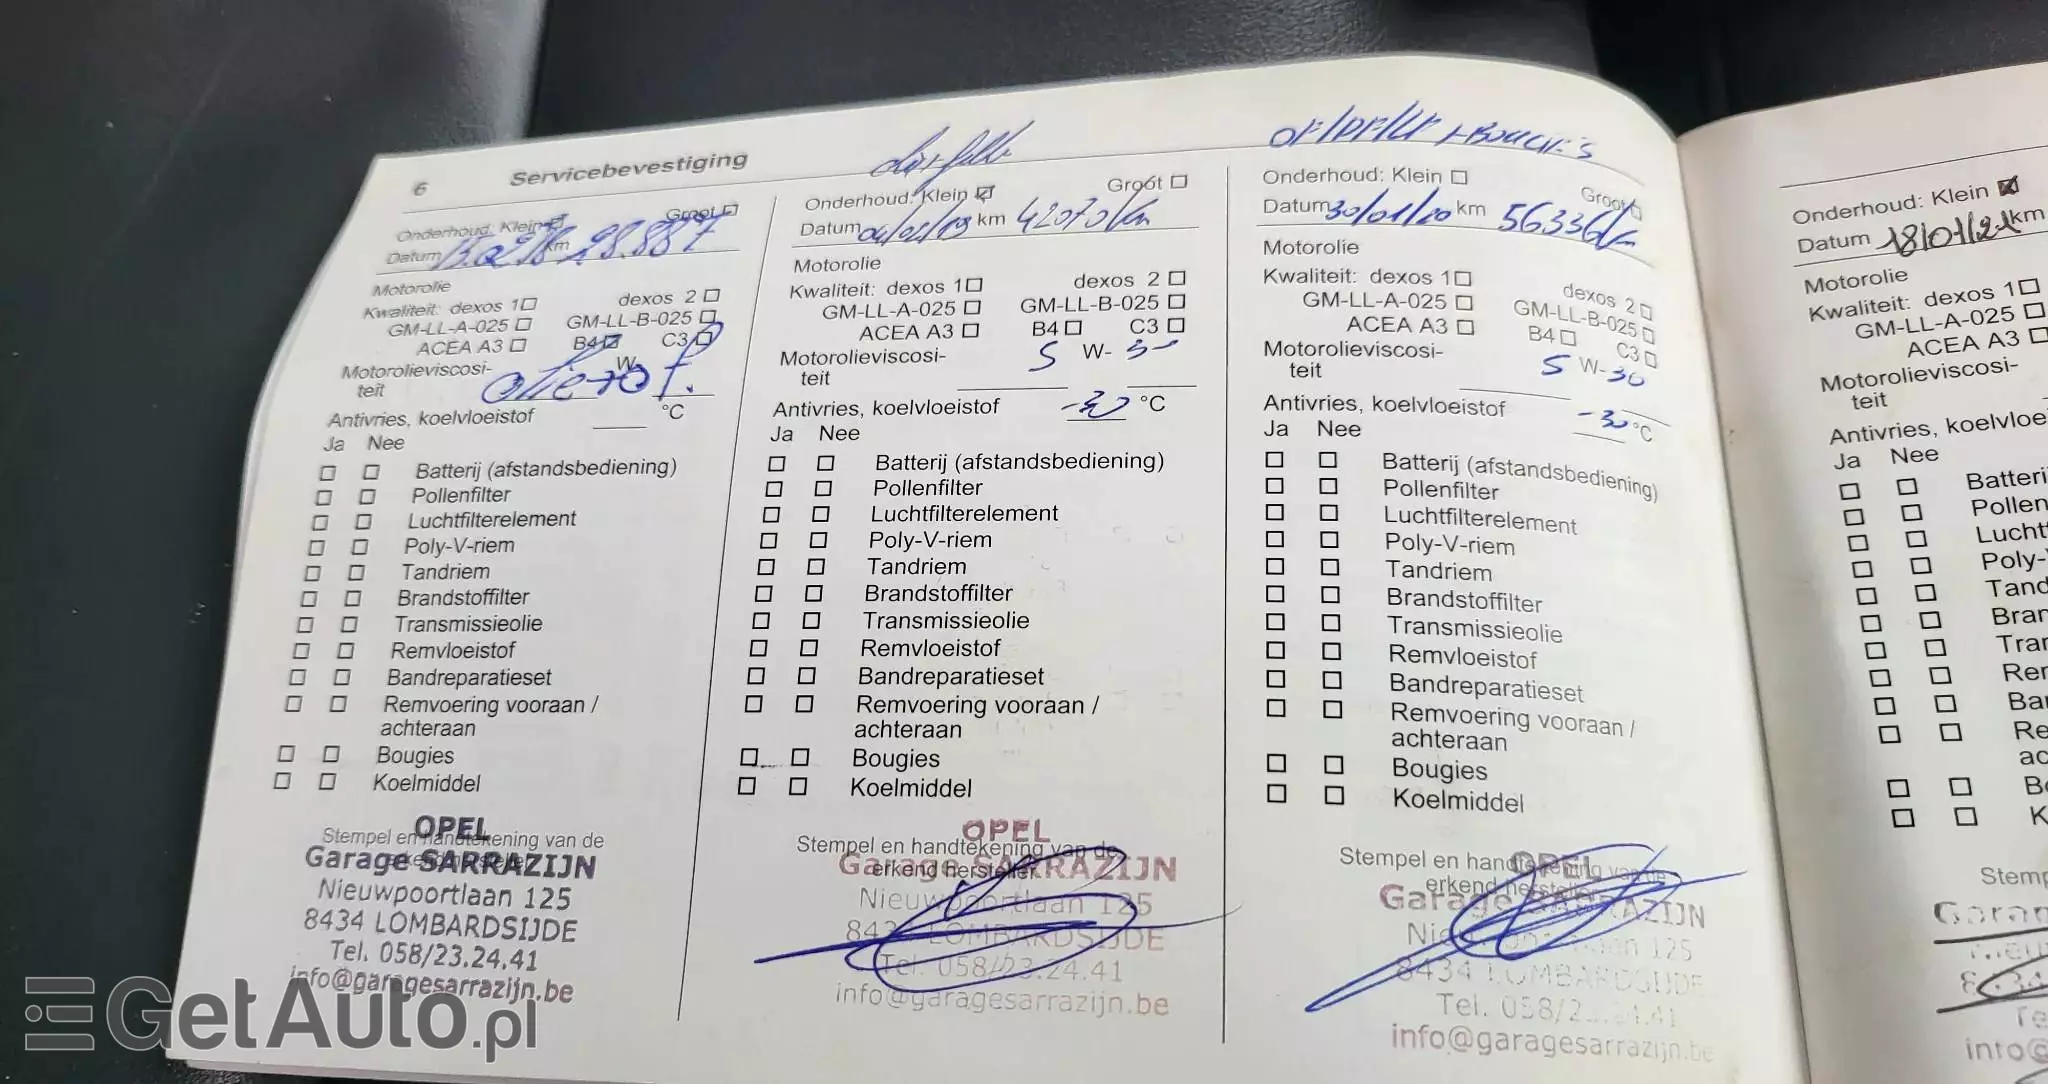 6 Servicebevestiging
Onderhoud: Klein Groot
Datum 15.02.18 km 28.887
Motorolie
Kwaliteit: dexos 1 dexos 2
GM-LL-A-025 GM-LL-B-025
ACEA A3 B4 C3
Motorolieviscosi- W-
teit olie + of.
Antivries, koelvloeistof °C
Ja Nee
Batterij (afstandsbediening)
Pollenfilter
Luchtfilterelement
Poly-V-riem
Tandriem
Brandstoffilter
Transmissieolie
Remvloeistof
Bandreparatieset
Remvoering vooraan /
achteraan
Bougies
Koelmiddel
Stempel en handtekening van de
erkend hersteller
OPEL
Garage SARRAZIJN
Nieuwpoortlaan 125
8434 LOMBARDSIJDE
Tel. 058/23.24.41
info@garagesarrazijn.be
Onderhoud: Klein Groot
Datum 04/02/19 km 42070 km
Motorolie
Kwaliteit: dexos 1 dexos 2
GM-LL-A-025 GM-LL-B-025
ACEA A3 B4 C3
Motorolieviscosi- 5 W- 30
teit
Antivries, koelvloeistof -30 °C
Ja Nee
Batterij (afstandsbediening)
Pollenfilter
Luchtfilterelement
Poly-V-riem
Tandriem
Brandstoffilter
Transmissieolie
Remvloeistof
Bandreparatieset
Remvoering vooraan /
achteraan
Bougies
Koelmiddel
Stempel en handtekening van de
erkend hersteller
OPEL
Garage SARRAZIJN
Nieuwpoortlaan 125
8434 LOMBARDSIJDE
Tel. 058/23.24.41
info@garagesarrazijn.be
OF/PF/LF + BOUGIES
Onderhoud: Klein Groot
Datum 30/01/20 km 56336 km
Motorolie
Kwaliteit: dexos 1 dexos 2
GM-LL-A-025 GM-LL-B-025
ACEA A3 B4 C3
Motorolieviscosi- 5 W-30
teit
Antivries, koelvloeistof -30 °C
Ja Nee
Batterij (afstandsbediening)
Pollenfilter
Luchtfilterelement
Poly-V-riem
Tandriem
Brandstoffilter
Transmissieolie
Remvloeistof
Bandreparatieset
Remvoering vooraan /
achteraan
Bougies
Koelmiddel
Stempel en handtekening van de
erkend hersteller
OPEL
Garage SARRAZIJN
Nieuwpoortlaan 125
8434 LOMBARDSIJDE
Tel. 058/23.24.41
info@garagesarrazijn.be
Onderhoud: Klein
Datum 18/01/21 km
Motorolie
Kwaliteit: dexos 1
GM-LL-A-025
ACEA A3
Motorolieviscosi-
teit
Antivries, koelvloe
Ja Nee
Batteri
Pollen
Lucht
Poly-
Tand
Bran
Tran
Rem
Ban
Re
ac
Bo
K
Stemp
Garan
Nieu
8434
Te
info@
GetAuto.pl